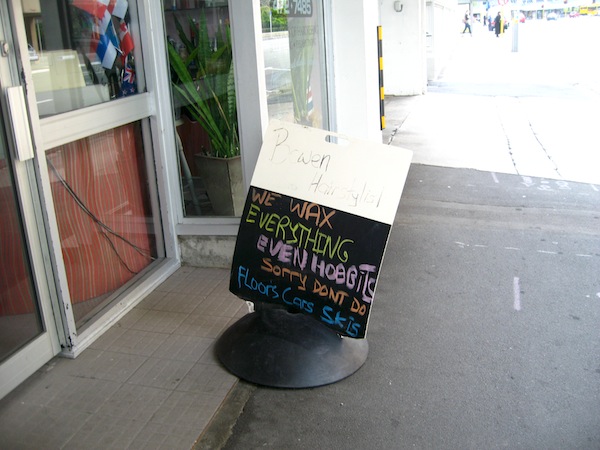 Bowen
Hairstylist
WE WAX
EVERYTHING
EVEN HOBBITS
SORRY DONT DO
FLOORS CARS SKIS